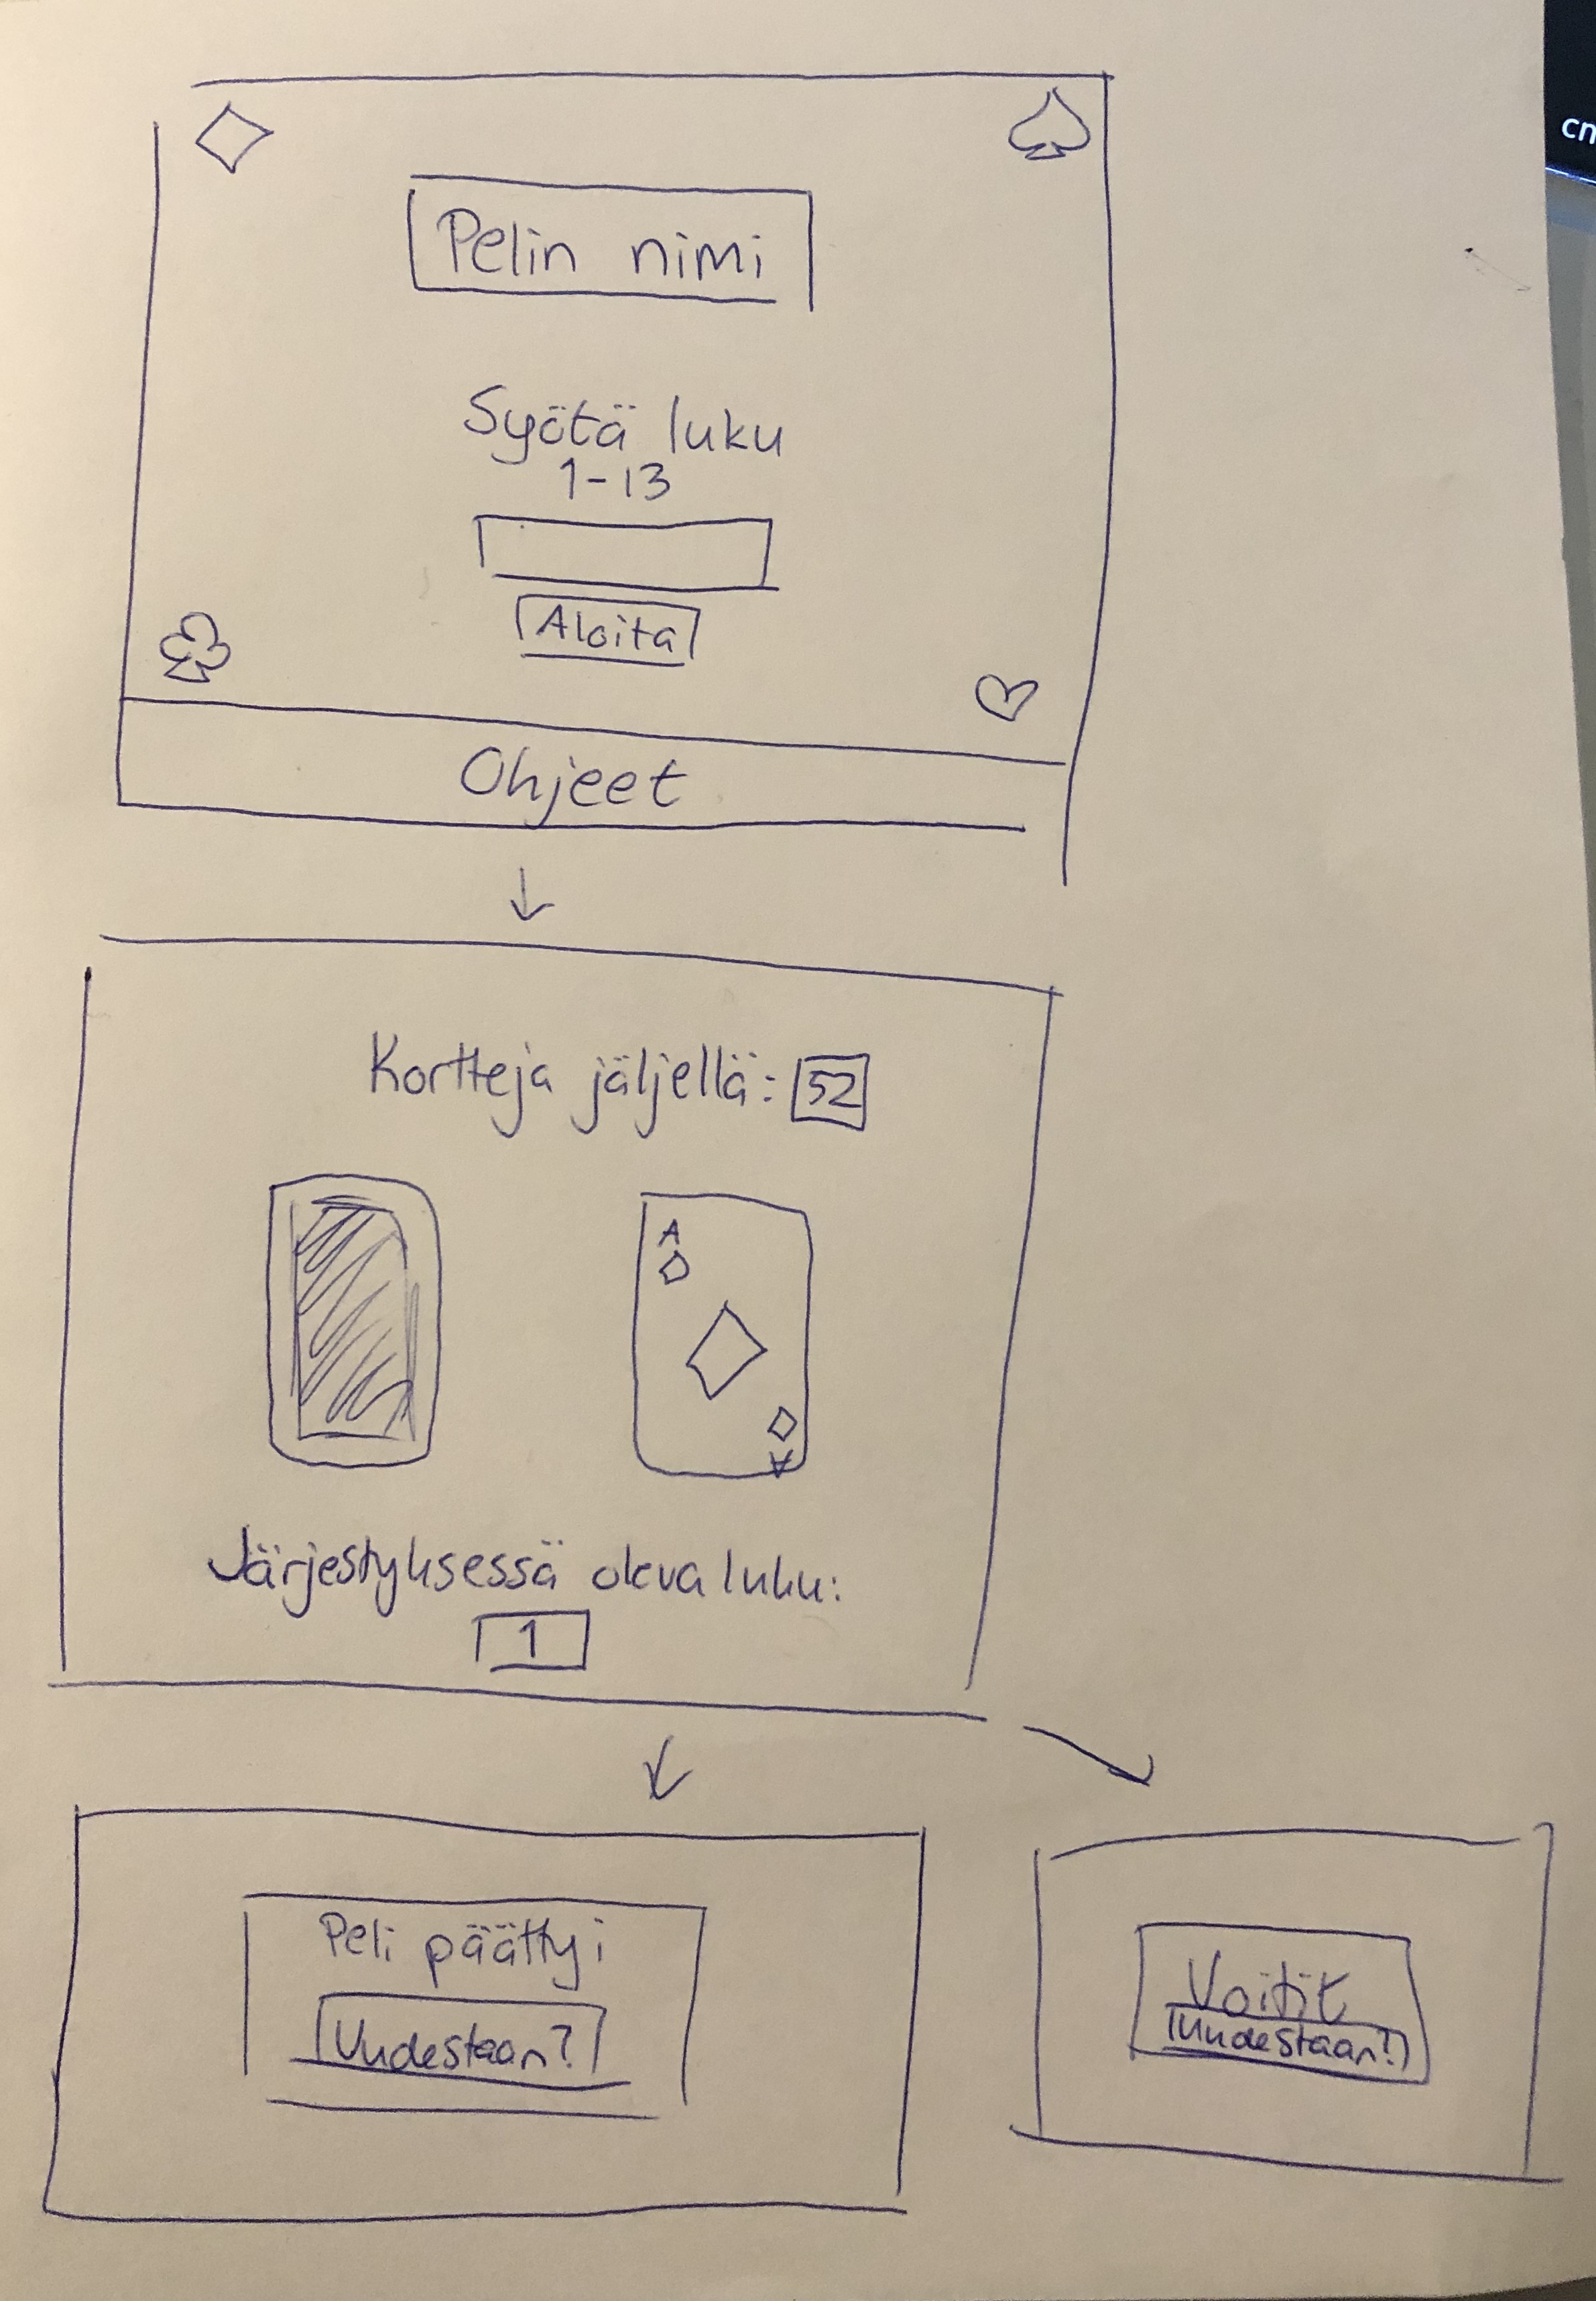 cn
Pelin nimi
Syötä luku
1-13
Aloita
Ohjeet
Kortteja jäljellä: 52
A
A
Järjestyksessä oleva luku:
1
Peli päättyi
Uudestaan?
Voitit
Uudestaan?